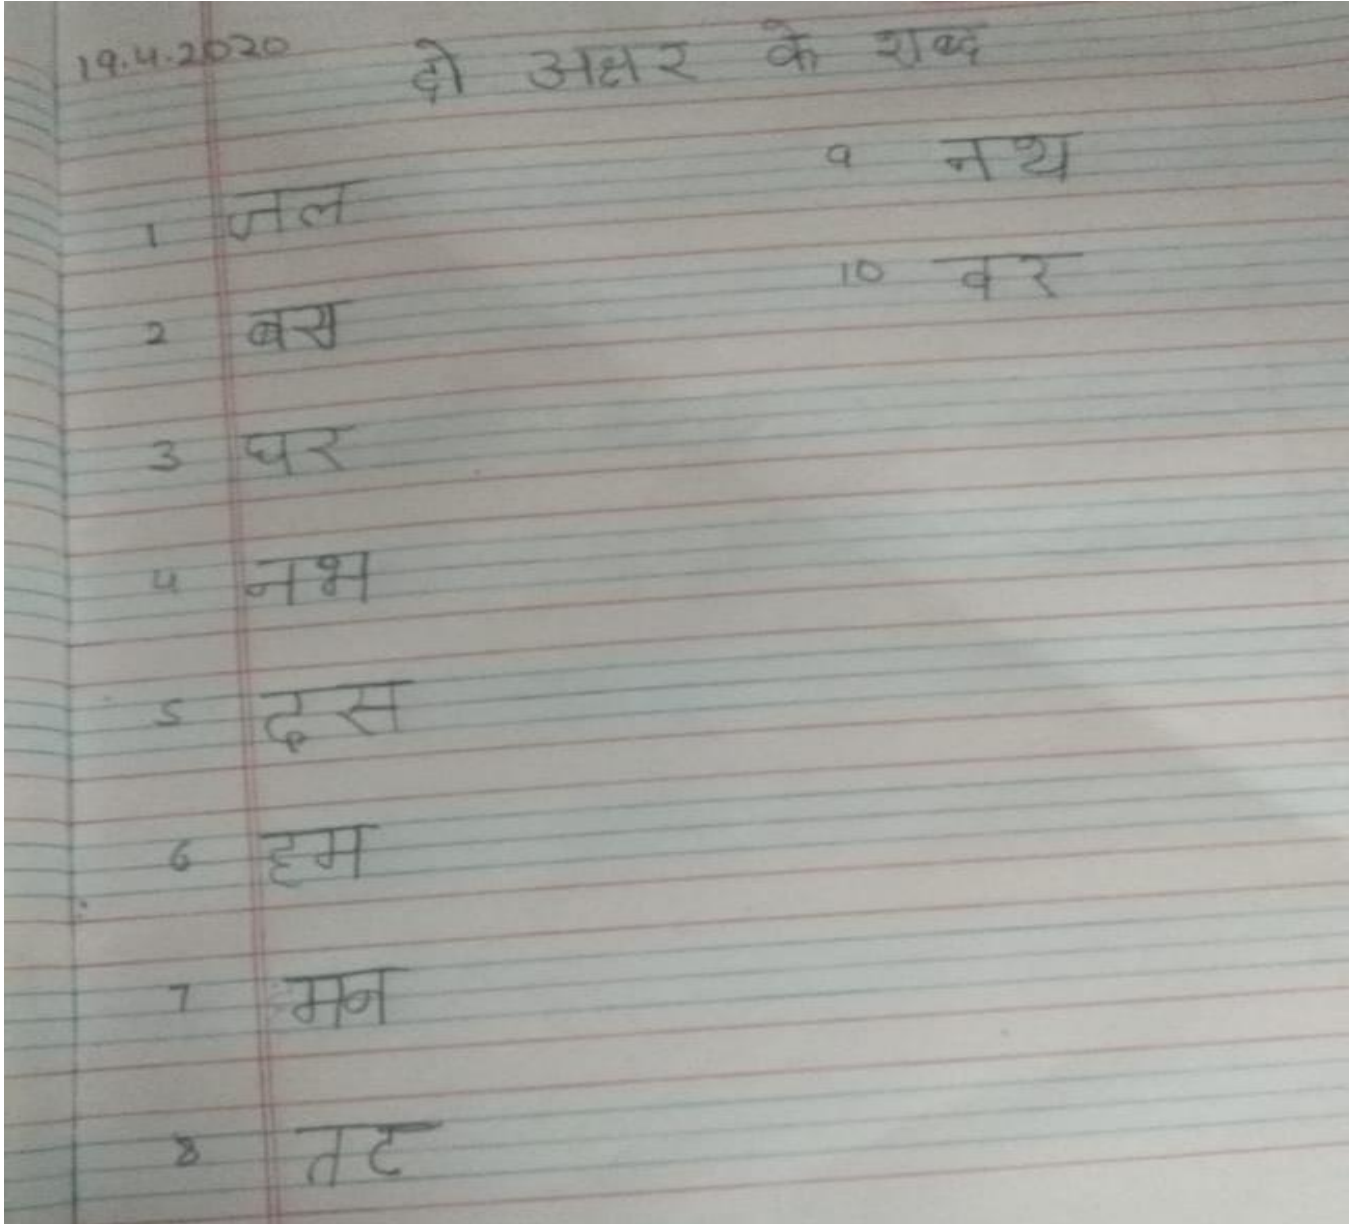 19.4.2020 दो अक्षर के शब्द
1 जल
2 बस
3 घर
4 नभ
5 दस
6 हम
7 मन
8 तट
9 नथ
10 वर